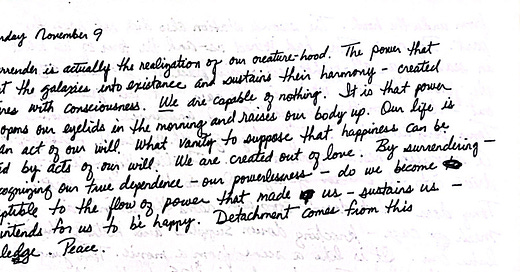 nday November 9
rrender is actually the realization of our creature-hood. The power that
t the galaxies into existance and sustains their harmony - created
nes with consciousness. We are capable of nothing. It is that power
opens our eyelids in the morning and raises our body up. Our life is
an act of our will. What vanity to suppose that happiness can be
d by acts of our will. We are created out of love. By surrendering -
cognizing our true dependence - our powerlessness - do we become
ptible to the flow of power that made us - sustains us -
intends for us to be happy. Detachment comes from this
ledge. Peace.